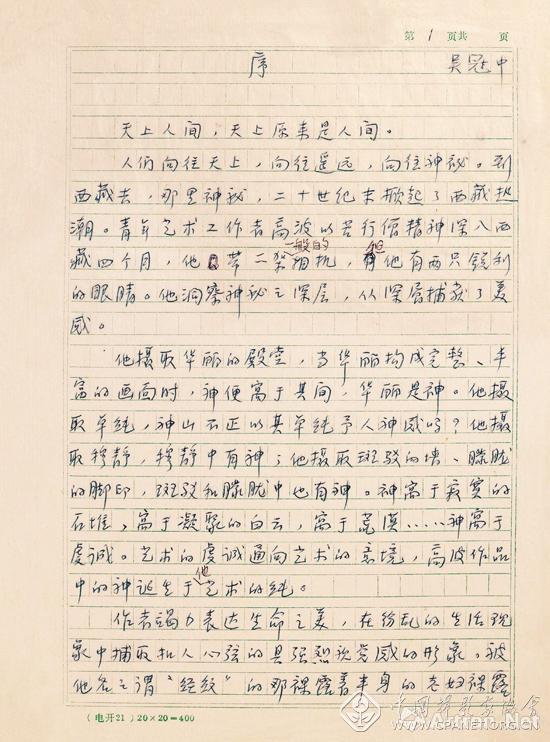 第 1 页共 页
序 吴冠中
天上人间,天上原来是人间。
人们向往天上,向往遥远,向往神秘。到
西藏去,那里神秘,二十世纪末掀起了西藏热
潮。青年艺术工作者高波以苦行僧精神深入西
藏四个月,他带二架一般的相机,但他有两只锐利
的眼睛。他洞察神秘之深层,从深层捕获了美
感。
他摄取华丽的殿堂,当华丽构成完整、丰
富的画面时,神便寓于其间,华丽是神。他摄
取单纯,神山不正以其单纯予人神感吗?他摄
取穆静,穆静中有神;他摄取斑驳的墙、朦胧
的脚印,斑驳和朦胧中也有神。神寓于寂寞的
石堆,寓于凝聚的白云,寓于荒漠……神寓于
虔诚。艺术的虔诚通向艺术的意境,高波作品
中的神诞生于他艺术的纯。
作者竭力表达生命之美,在纷乱的生活现
象中捕取扣人心弦的具强烈视觉感的形象。被
他名之谓“经纹”的那裸露着半身的老妇裸露
(电开21)20×20=400
中国摄影家协会
WWW.CPANET.ORG.CN
Artron.Net